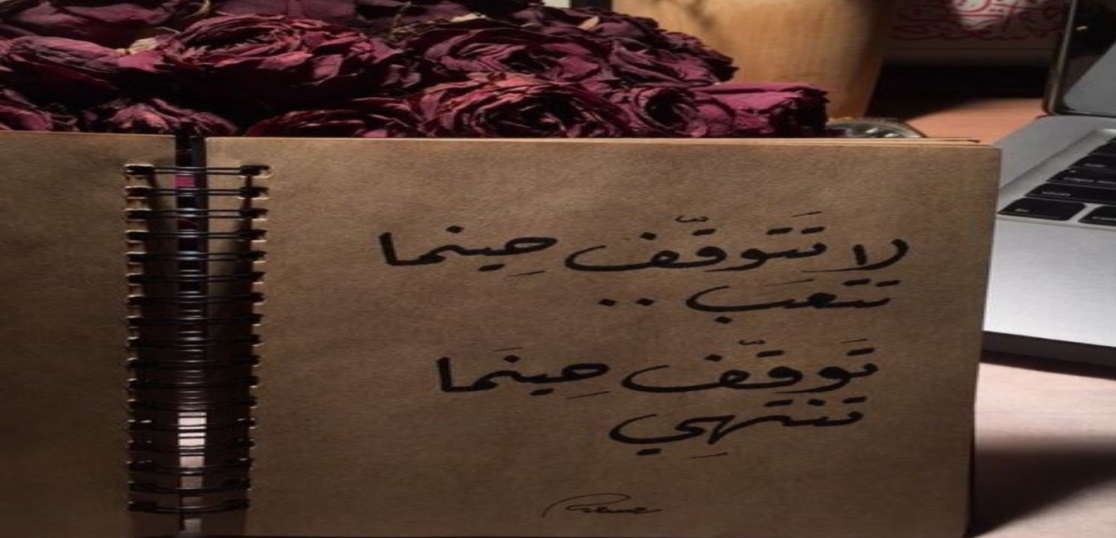 لا تَتَوقّف حِينما
تتعَب ..
تَوقّف حِينَما
تنتهِي